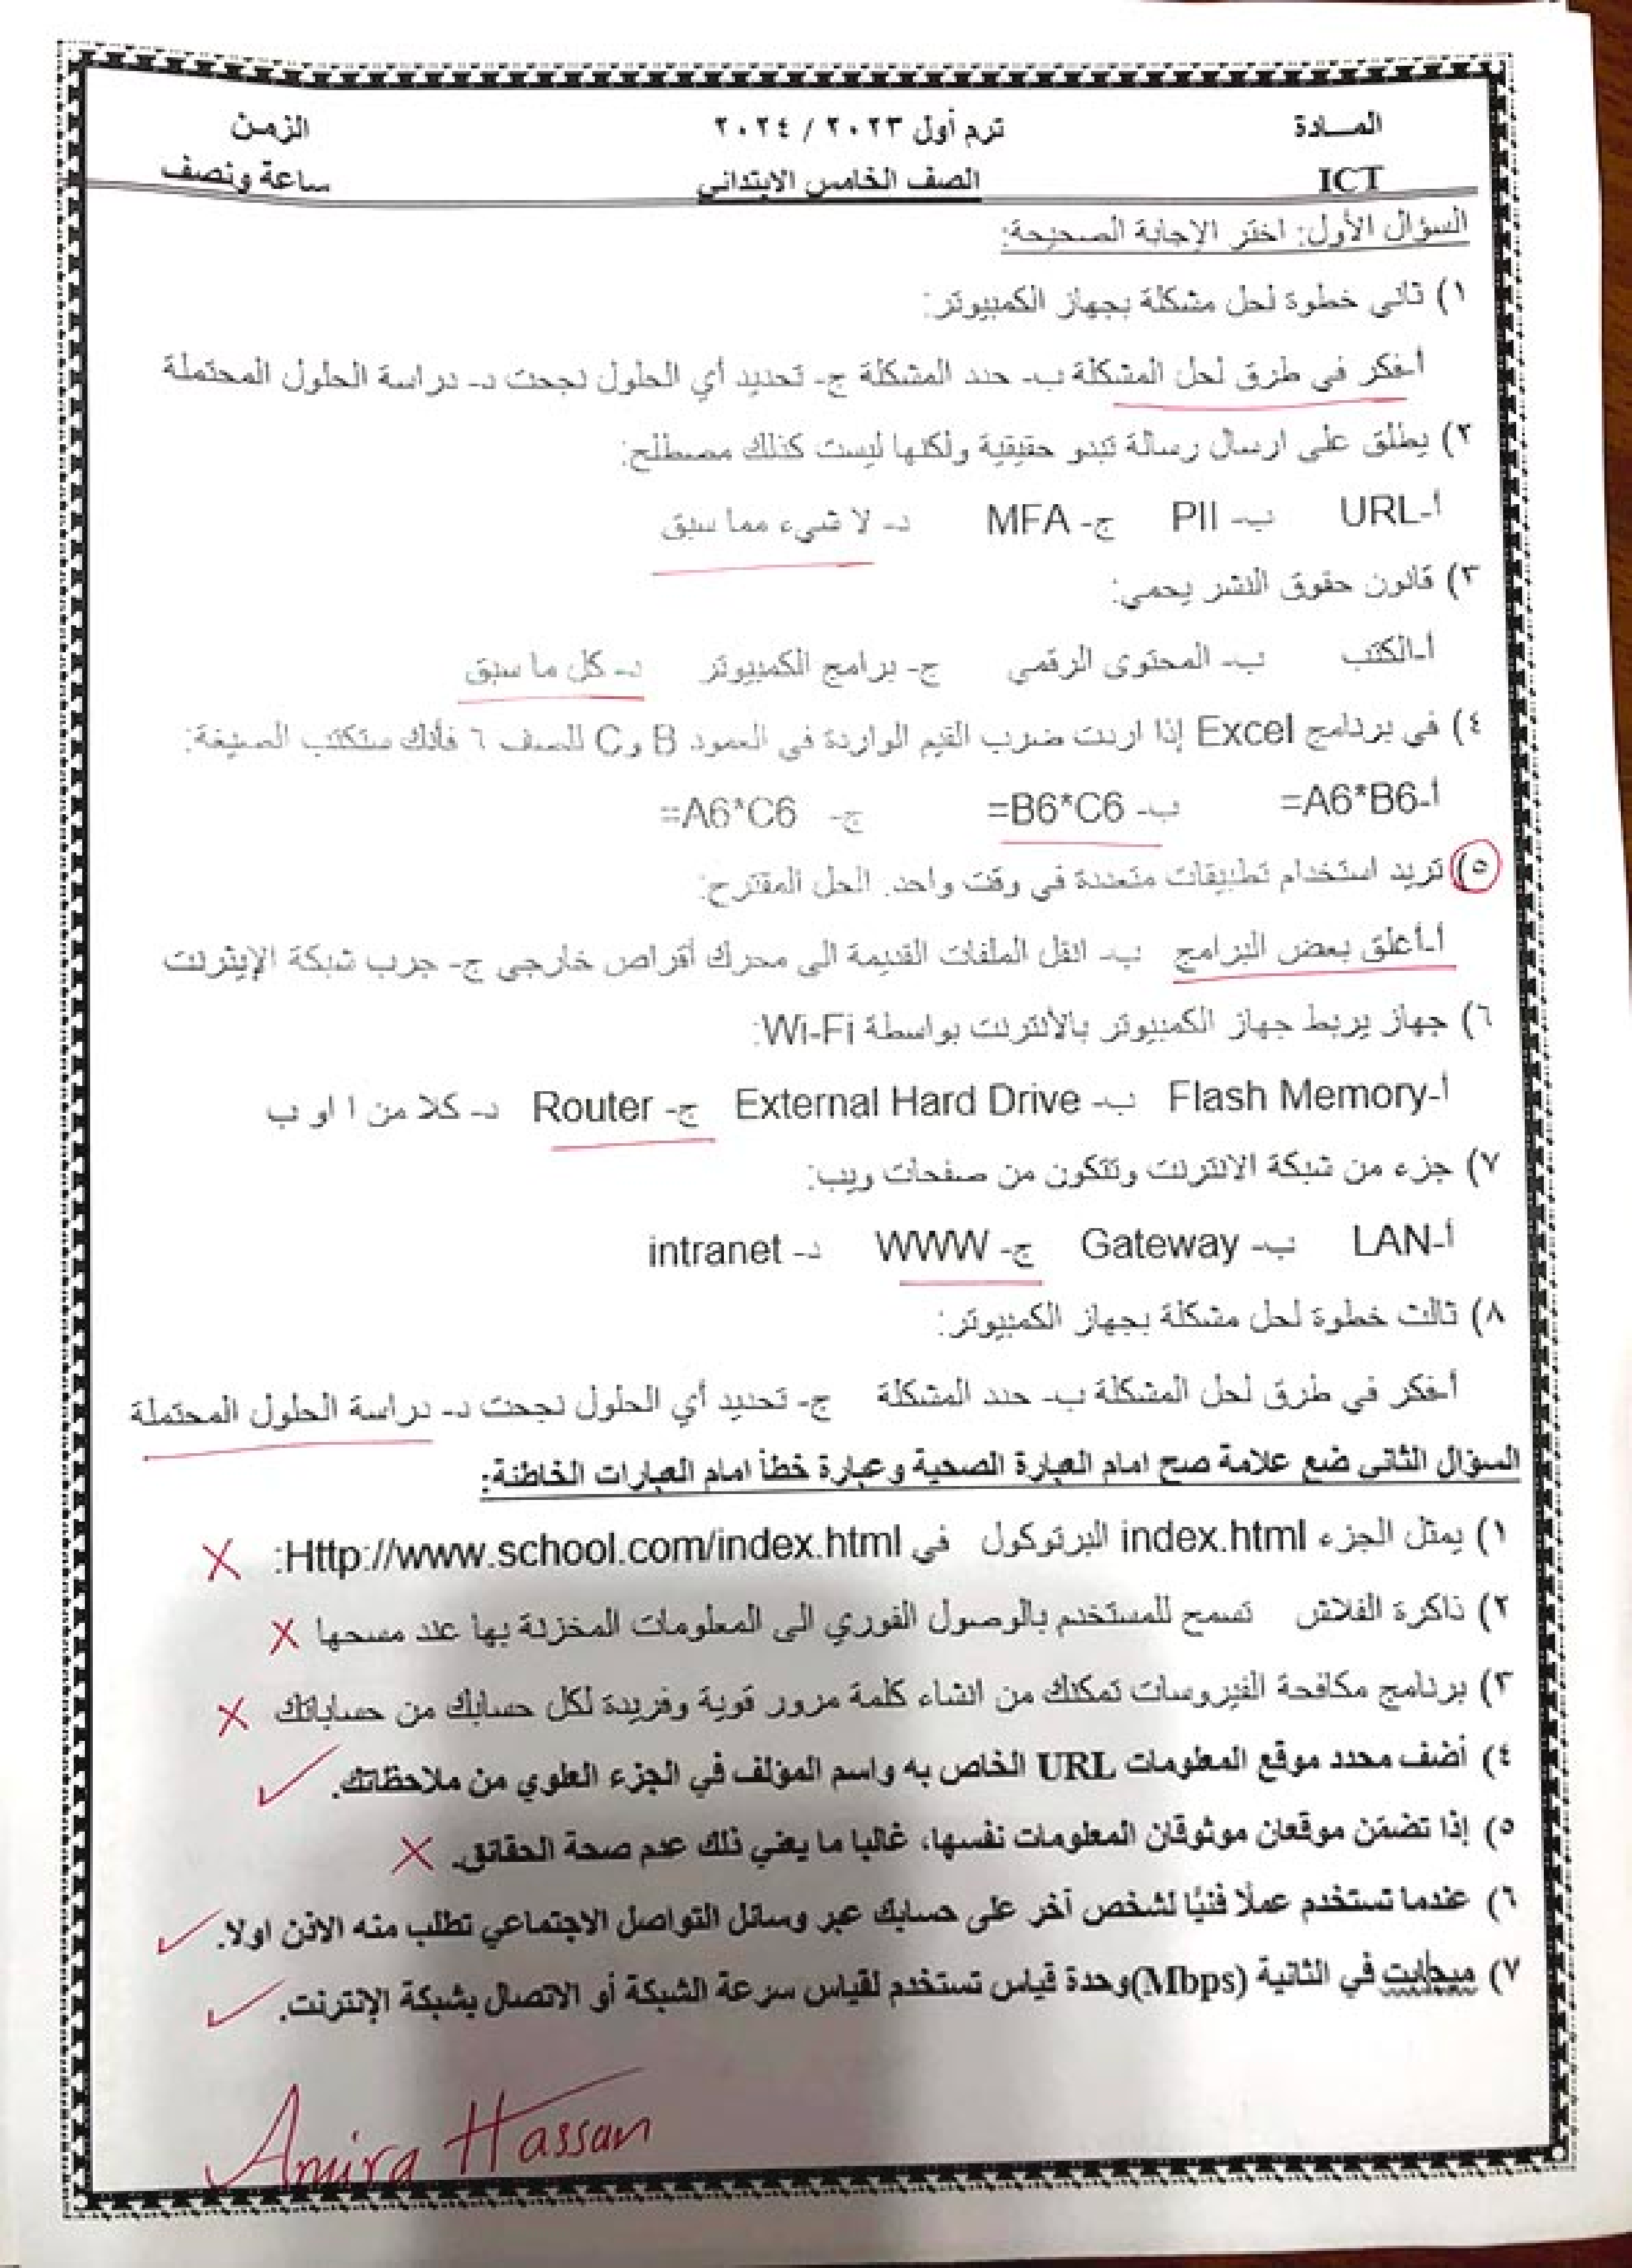 المـــادة ترم أول ٢٠٢٣ / ٢٠٢٤ الزمـن
ICT الصف الخامس الابتدائي ساعة ونصف
السؤال الأول: اختر الإجابة الصحيحة:
١) ثاني خطوة لحل مشكلة بجهاز الكمبيوتر:
أ-فكر في طرق لحل المشكلة ب- حدد المشكلة ج- تحديد أي الحلول نجحت د- دراسة الحلول المحتملة
٢) يطلق على ارسال رسالة تبدو حقيقية ولكنها ليست كذلك مصطلح:
أ-URL ب- PII ج- MFA د- لا شيء مما سبق
٣) قانون حقوق النشر يحمي:
أ-الكتب ب- المحتوى الرقمي ج- برامج الكمبيوتر د- كل ما سبق
٤) في برنامج Excel إذا اردت ضرب القيم الواردة في العمود B و C للصف ٦ فأنك ستكتب الصيغة:
أ-A6*B6= ب- B6*C6= ج- A6*C6=
٥) تريد استخدام تطبيقات متعددة في وقت واحد. الحل المقترح:
أ-أغلق بعض البرامج ب- انقل الملفات القديمة الى محرك أقراص خارجي ج- جرب شبكة الإيثرنت
٦) جهاز يربط جهاز الكمبيوتر بالأنترنت بواسطة Wi-Fi:
أ-Flash Memory ب- External Hard Drive ج- Router د- كلا من ا او ب
٧) جزء من شبكة الانترنت وتتكون من صفحات ويب:
أ-LAN ب- Gateway ج- WWW د- intranet
٨) ثالث خطوة لحل مشكلة بجهاز الكمبيوتر:
أ-فكر في طرق لحل المشكلة ب- حدد المشكلة ج- تحديد أي الحلول نجحت د- دراسة الحلول المحتملة
السؤال الثاني ضع علامة صح امام العبارة الصحية وعبارة خطأ امام العبارات الخاطئة:
١) يمثل الجزء index.html البرتوكول في Http://www.school.com/index.html: ✗
٢) ذاكرة الفلاش تسمح للمستخدم بالوصول الفوري الى المعلومات المخزنة بها عند مسحها ✗
٣) برنامج مكافحة الفيروسات تمكنك من انشاء كلمة مرور قوية وفريدة لكل حسابك من حساباتك ✗
٤) أضف محدد موقع المعلومات URL الخاص به واسم المؤلف في الجزء العلوي من ملاحظاتك. ✓
٥) إذا تضمّن موقعان موثوقان المعلومات نفسها، غالبا ما يعني ذلك عدم صحة الحقائق. ✗
٦) عندما تستخدم عملًا فنيًا لشخص آخر على حسابك عبر وسائل التواصل الاجتماعي تطلب منه الاذن اولا. ✓
٧) ميجابت في الثانية (Mbps)وحدة قياس تستخدم لقياس سرعة الشبكة أو الاتصال بشبكة الإنترنت. ✓
Amira Hassan